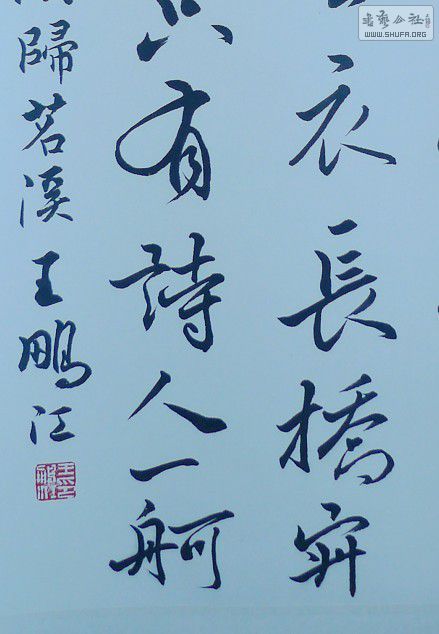 衣長橋
只有詩人一舸
歸茗溪王鵬江
書藝公社
WWW.SHUFA.ORG